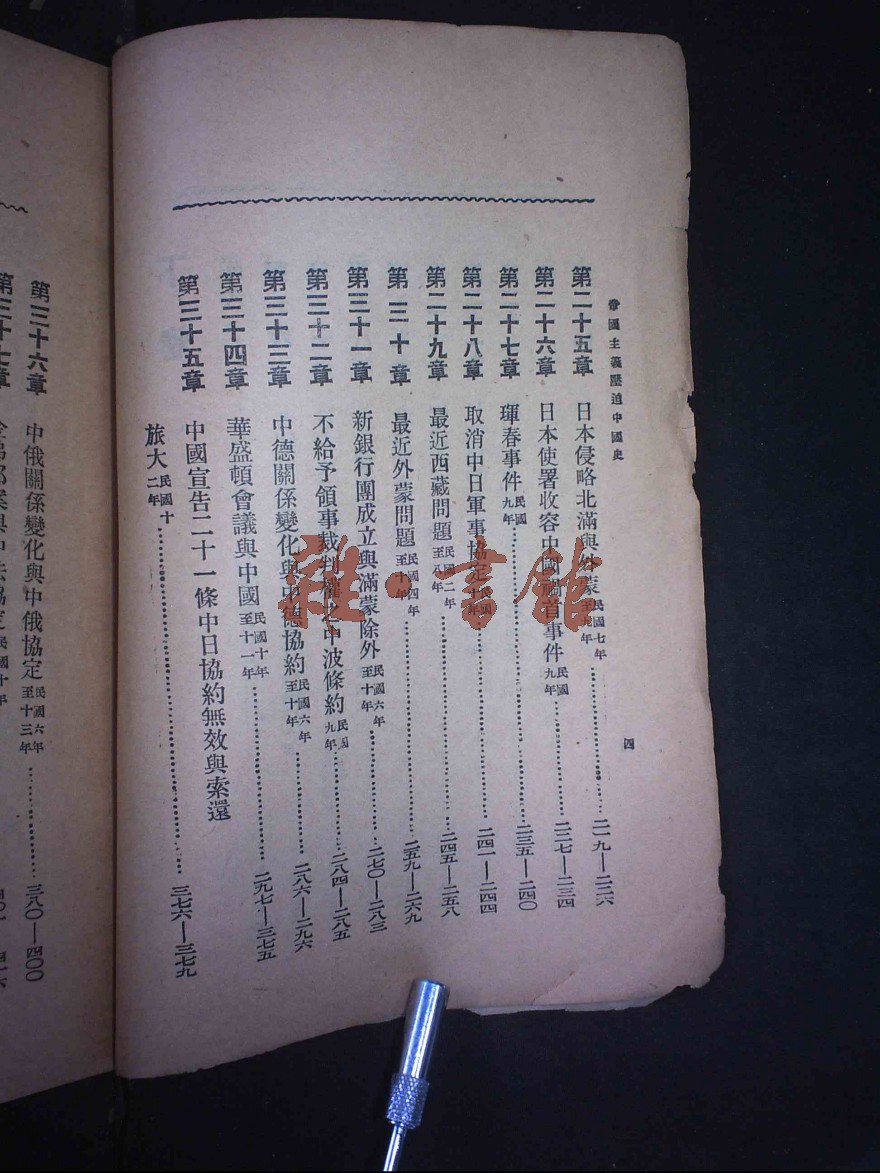 帝國主義壓迫中國史
四
第二十五章 日本侵略北滿與外蒙 民國七年至九年 二一九—二二六
第二十六章 日本使署收容中國禍首事件 民國九年 二二七—二三四
第二十七章 琿春事件 民國九年 二三五—二四〇
第二十八章 取消中日軍事協定 民國十年 二四一—二四四
第二十九章 最近西藏問題 民國二年至八年 二四五—二五八
第三十章 最近外蒙問題 民國四年至十年 二五九—二六九
第三十一章 新銀行團成立與滿蒙除外 民國六年至十年 二七〇—二八三
第三十二章 不給予領事裁判權之中波條約 民國九年 二八四—二八五
第三十三章 中德關係變化與中德協約 民國六年至十年 二八六—二九六
第三十四章 華盛頓會議與中國 民國十年至十一年 二九七—三七五
第三十五章 中國宣告二十一條中日協約無效與索還
旅大 民國十二年 三七六—三七九
第三十六章 中俄關係變化與中俄協定 民國六年至十三年 三八〇—四〇〇
第三十七章
雜·書館